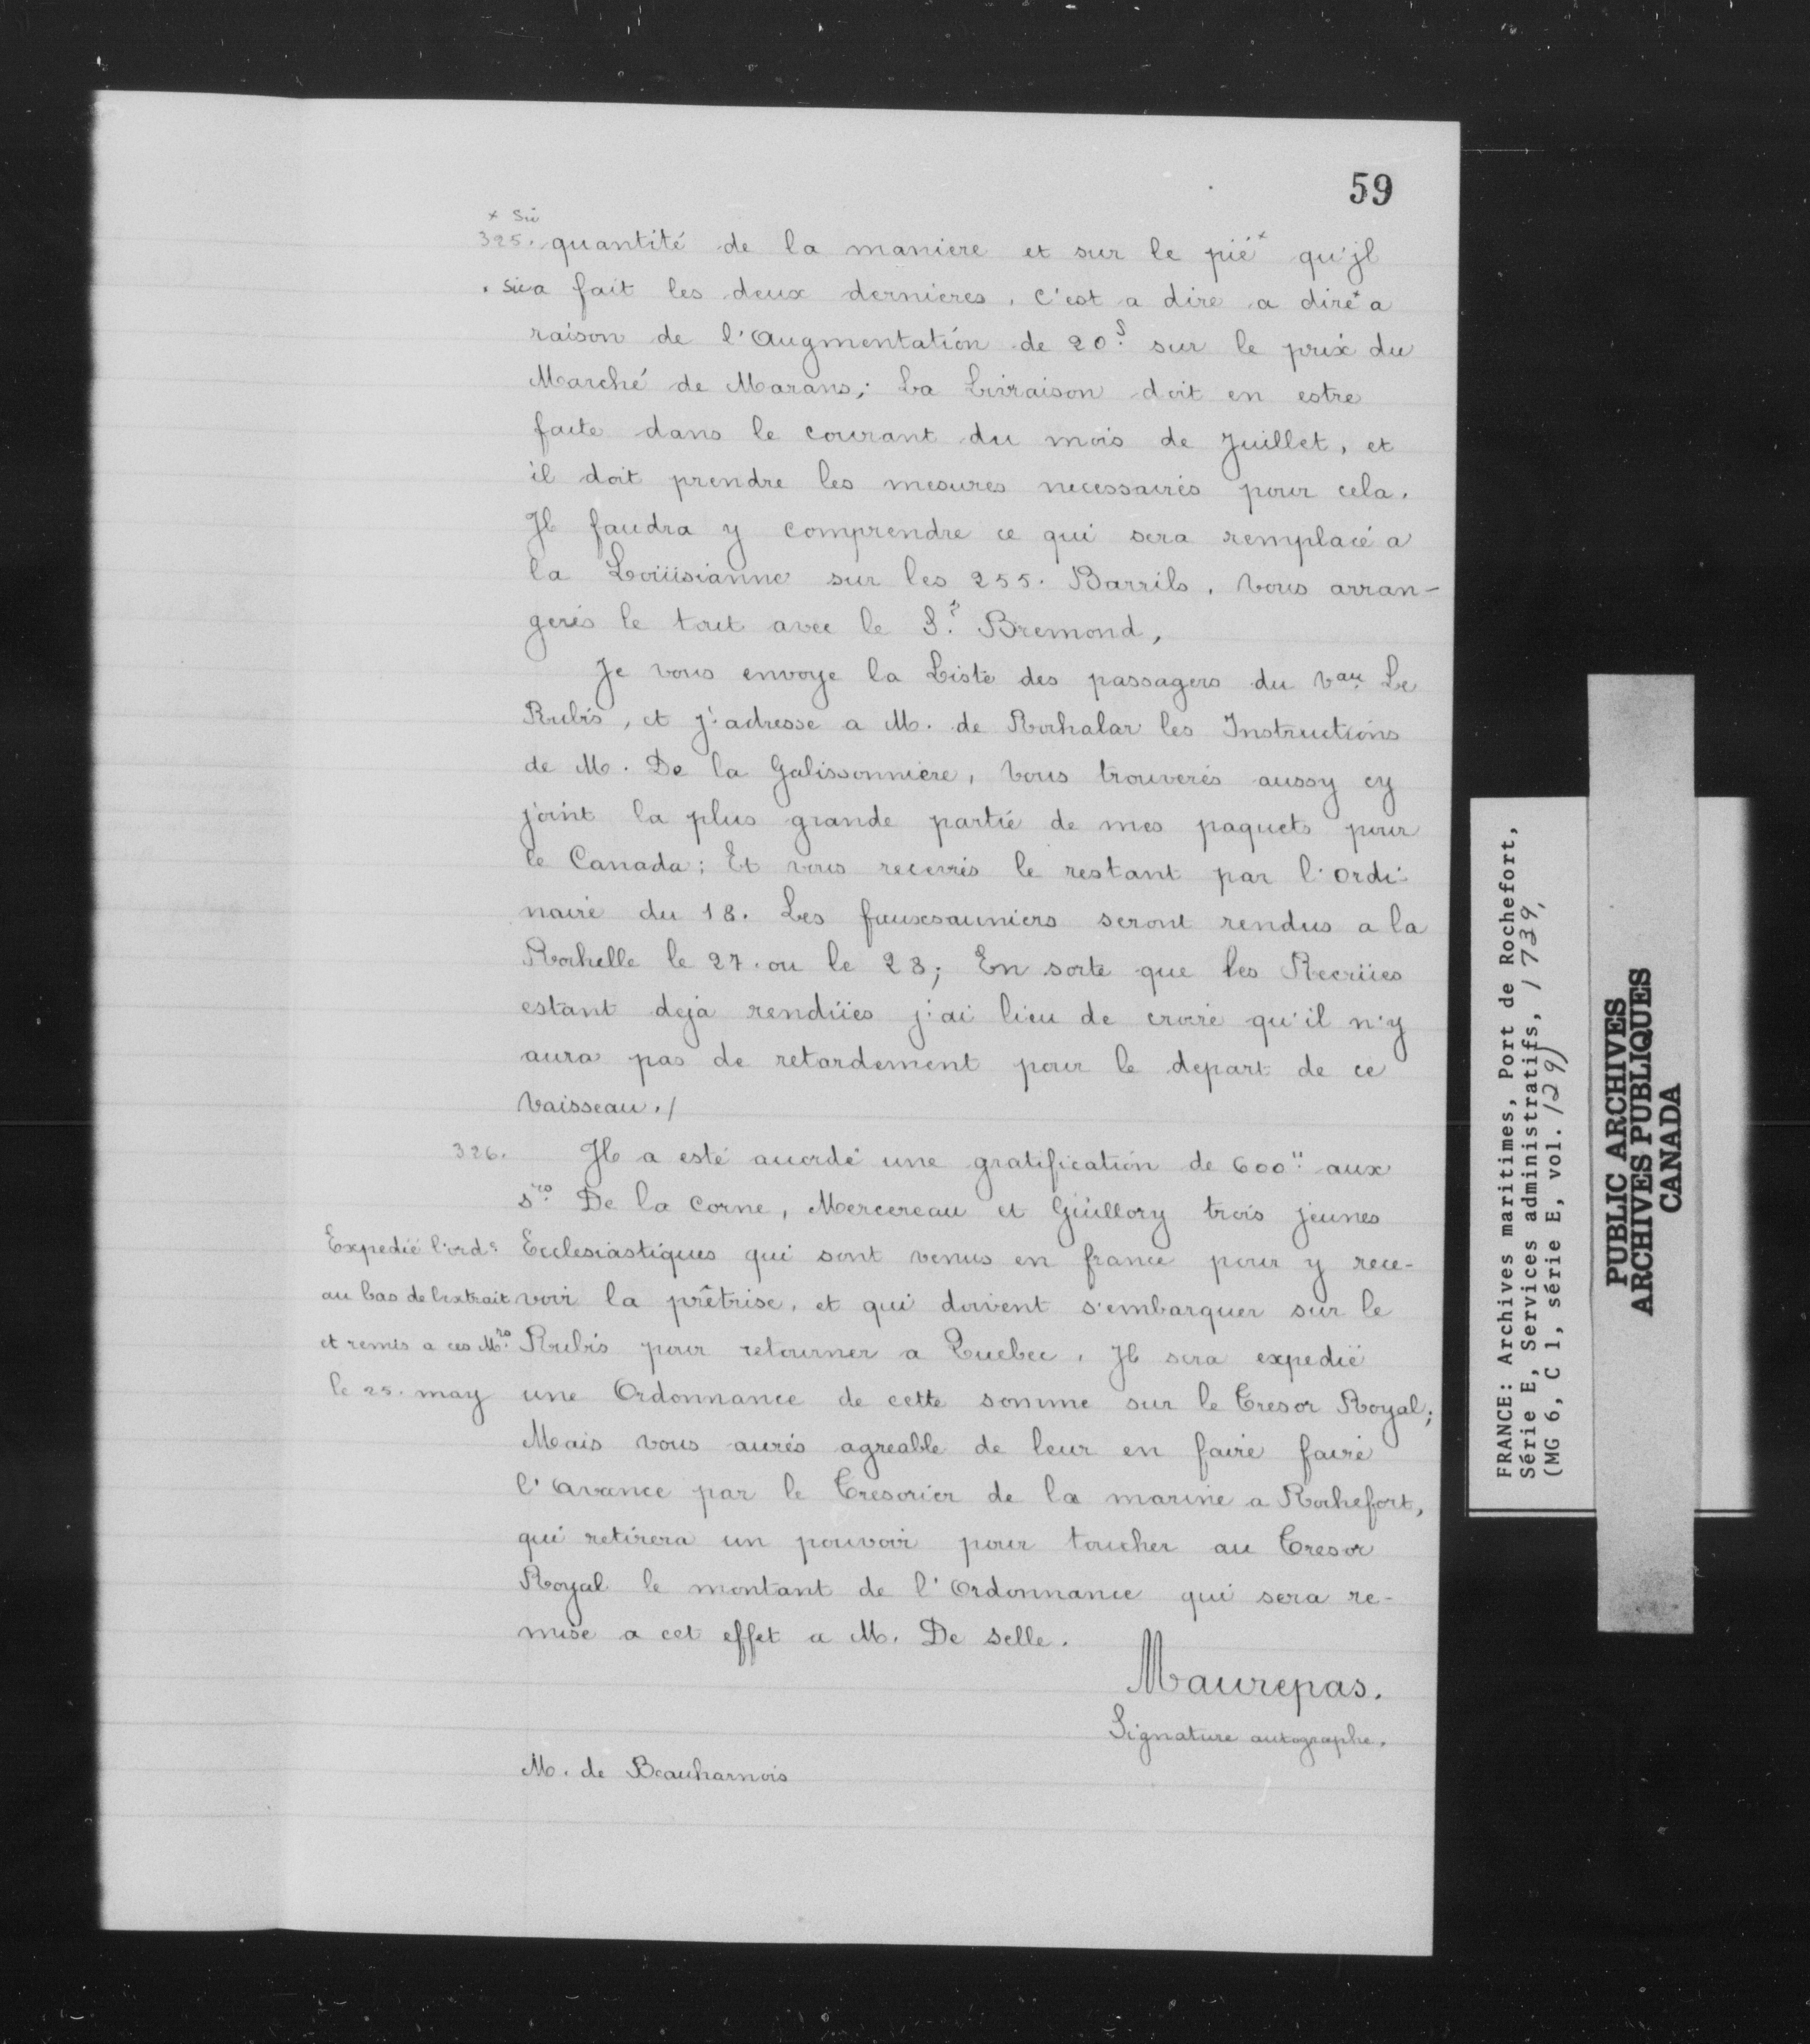 59
x Sic
325. quantité de la maniere et sur le pié x qu'jl
. sic a fait les deux dernieres, c'est a dire a dire x a
raison de l'Augmentation de 20.s sur le prix du
Marché de Marans; La Livraison doit en estre
faite dans le courant du mois de Juillet, et
il doit prendre les mesures necessaires pour cela.
Jl faudra y comprendre ce qui sera remplacé a
la Loüisianne sur les 255. Barrils. Vous arran-
gerés le tout avec le S.r Bremond,
Je vous envoye la Liste des passagers du Vau. Le
Rubis, et j'adresse a M. de Rochalar les Instructions
de M. De la Galissonniere, Vous trouverés aussy cy
joint la plus grande partie de mes paquets pour
le Canada; Et vous recevrés le restant par l'ordi-
naire du 18. Les fauxsauniers seront rendus a la
Rochelle le 27. ou le 28; En sorte que les Recrües
estant deja rendües j'ai lieu de croire qu'il n'y
aura pas de retardement pour le depart de ce
Vaisseau./
326. Jl a esté acordé une gratification de 600.ll aux
s.rs De la Corne, Mercereau et Guillory trois jeunes
Expedié l'ord.e Ecclesiastiques qui sont venus en france pour y rece-
au bas de lextrait voir la prêtrise, et qui doivent s'embarquer sur le
et remis a ces M.rs Rubis pour retourner a Quebec. Jl sera expedié
le 25. may une Ordonnance de cette somme sur le Tresor Royal;
Mais vous aurés agreable de leur en faire faire
l'avance par le Tresorier de la marine a Rochefort,
qui retirera un pouvoir pour toucher au Tresor
Royal le montant de l'Ordonnance qui sera re-
mise a cet effet a M. De Selle.
Maurepas.
Signature autographe.
M. de Beauharnois
FRANCE: Archives maritimes, Port de Rochefort,
Série E, Services administratifs, 1739,
(MG 6, C 1, série E, vol. 129)
PUBLIC ARCHIVES
ARCHIVES PUBLIQUES
CANADA